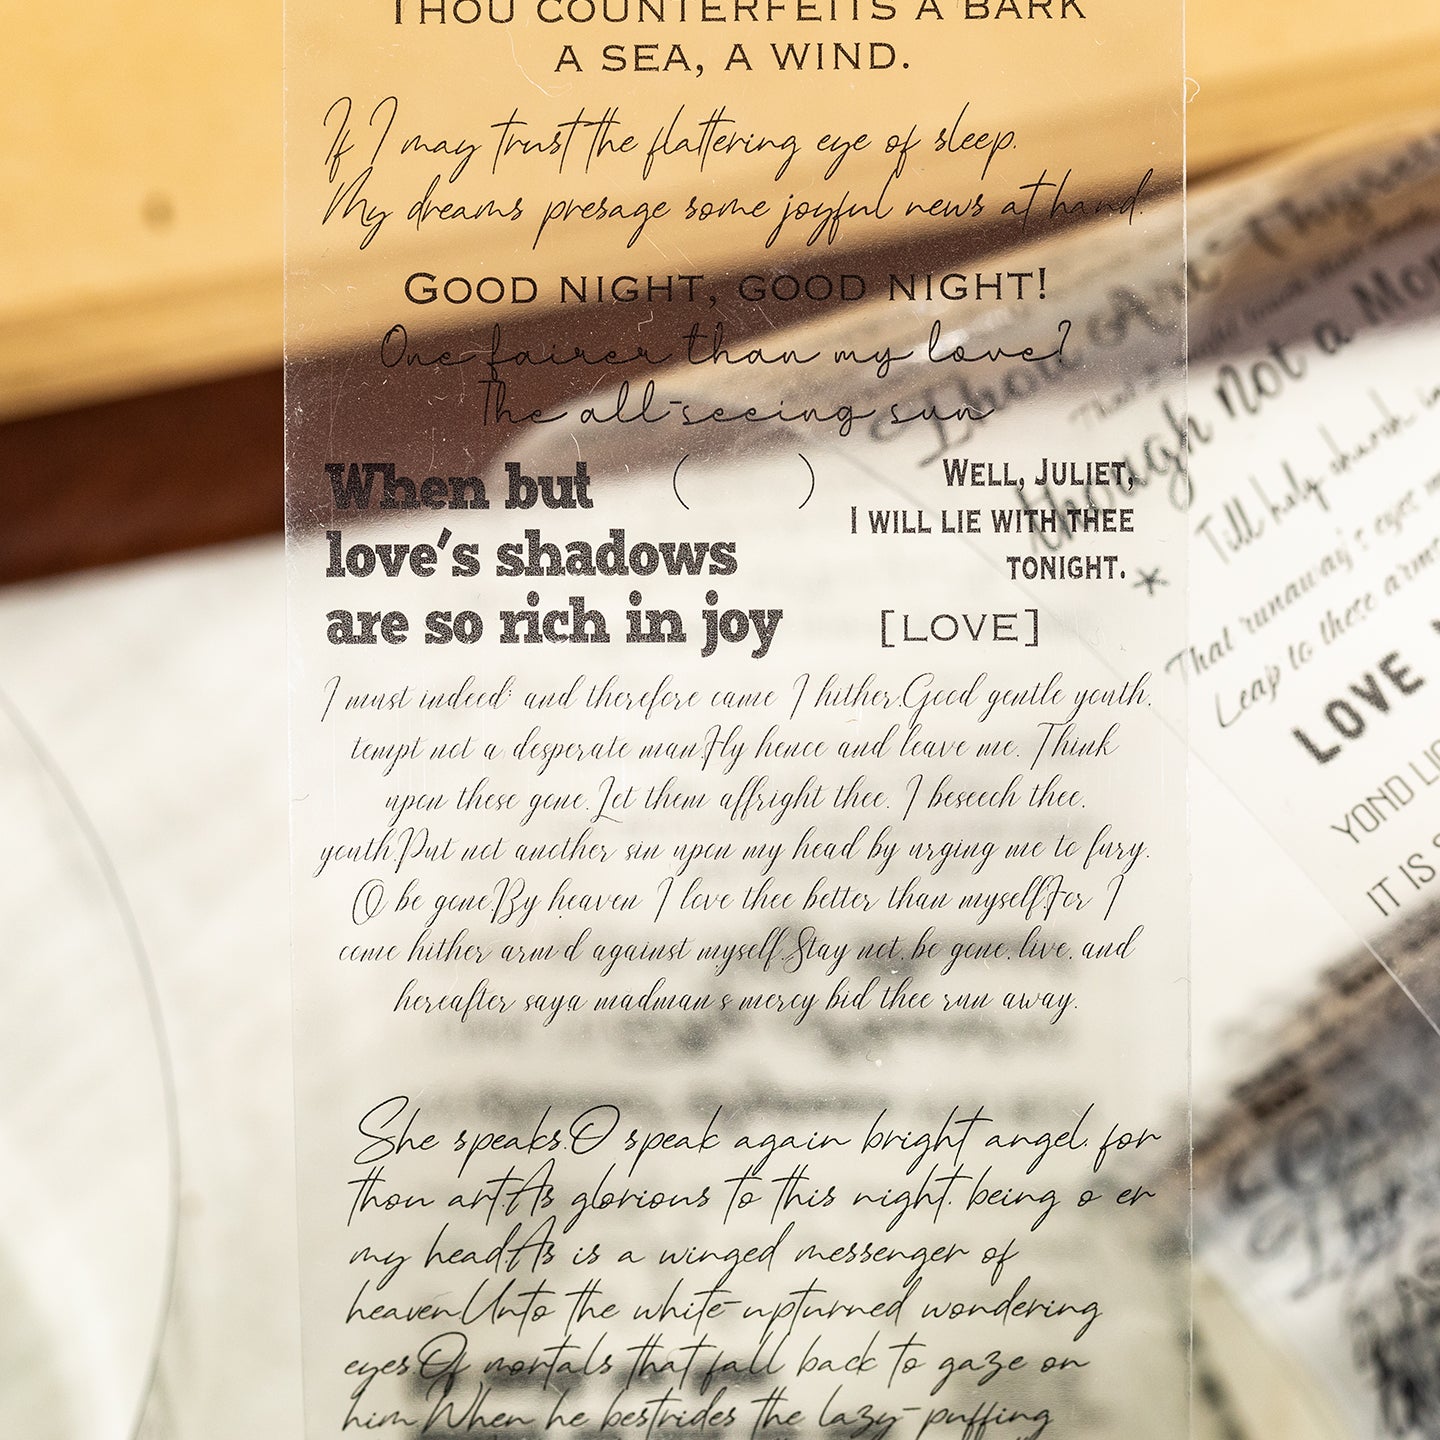 THOU COUNTERFEITS A BARK
A SEA, A WIND.
If I may trust the flattering eye of sleep.
My dreams presage some joyful news at hand.
GOOD NIGHT, GOOD NIGHT!
One fairer than my love?
The all-seeing sun
When but
love's shadows
are so rich in joy
( )
WELL, JULIET,
I WILL LIE WITH THEE
TONIGHT.
[LOVE]
I must indeed; and therefore came I hither.Good gentle youth,
tempt not a desperate man.Fly hence and leave me. Think
upon these gone.Let them affright thee. I beseech thee,
youth.Put not another sin upon my head by urging me to fury.
O be gone.By heaven I love thee better than myself.For I
come hither arm d against myself.Stay not, be gone, live, and
hereafter say,a madman s mercy bid thee run away.
She speaks.O speak again bright angel, for
thou art.As glorious to this night, being o er
my head.As is a winged messenger of
heaven.Unto the white-upturned wondering
eyes.Of mortals that fall back to gaze on
him.When he bestrides the lazy-puffing
Thou Art Thyself
though not a Mon
Till holy church in
That runaway's eyes
Leap to these arms
LOVE
YOND LIG
IT IS